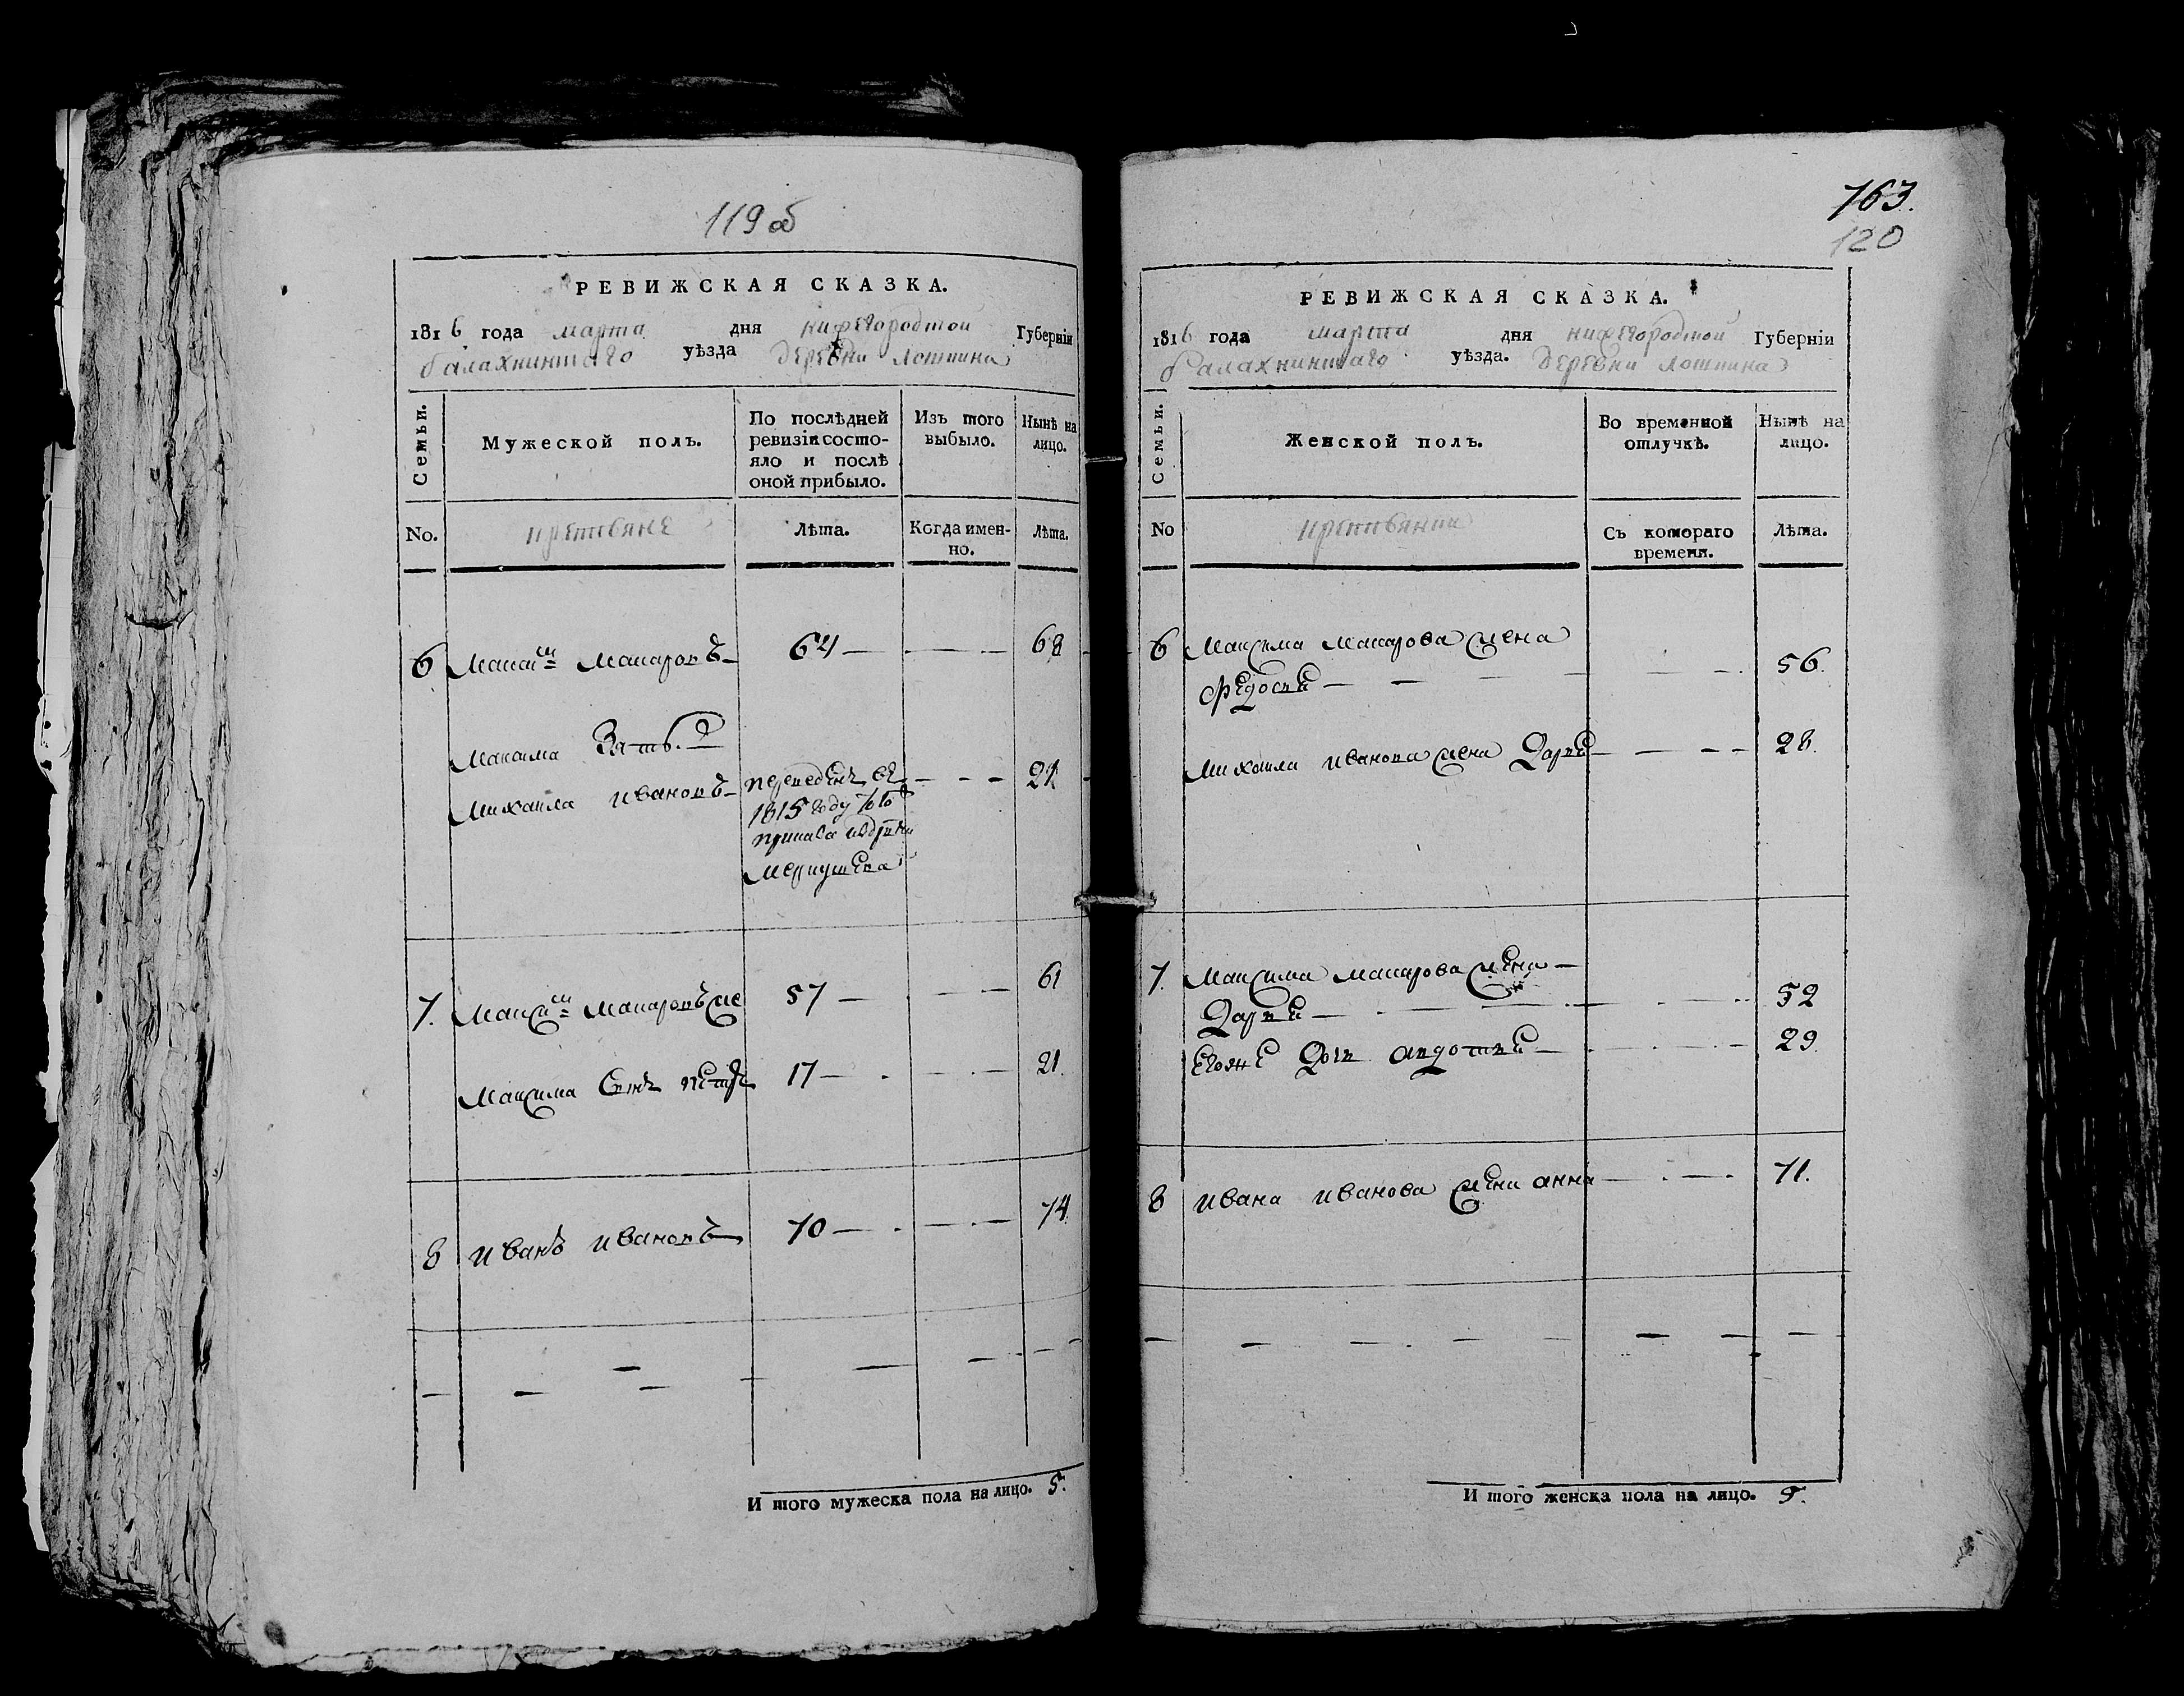 119 об
РЕВИЖСКАЯ СКАЗКА.
1816 года марта дня нижегородской Губерніи
балахнинскаго уѣзда деревни
Семьи.
Мужеской полъ.
По послѣдней ревизіи состо-
яло и послѣ
оной прибыло.
Изъ того
выбыло.
Нынѣ на
лицо.
No.
крестьяне
Лѣта.
Когда имен-
но.
Лѣта.
6 Максимъ Макаровъ 64 68
Максима Зять
Михаила Ивановъ переведенъ въ 21
1815 году
7. Максимъ Макаровъ же 57 61
Максима Сынъ петръ 17 21.
8 иванъ ивановъ 70 74.
И того мужеска пола на лицо. 5.
163.
120
РЕВИЖСКАЯ СКАЗКА.
1816 года марта дня нижегородской Губерніи
балахнинскаго уѣзда. деревни
Семьи.
Женской полъ.
Во временной
отлучкѣ.
Нынѣ на
лицо.
No
крестьянки
Съ котораго
времени.
Лѣта.
6 Максима Макарова жена
Федосья 56.
Михаила иванова жена Дарья 28.
7. Максима Макарова жена
Дарья 52
Егоже Дочь авдотья 29.
8 ивана иванова жена анна 71.
И того женска пола на лицо. 5.